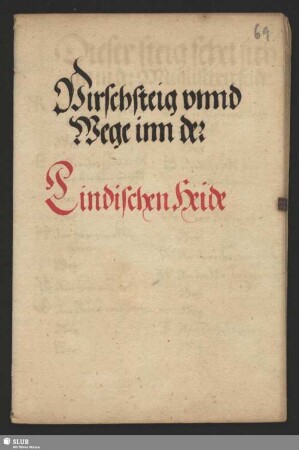 69
Pirschsteig vnnd
Wege inn der
Lindischen Heide
SLUB
Wir führen Wissen.